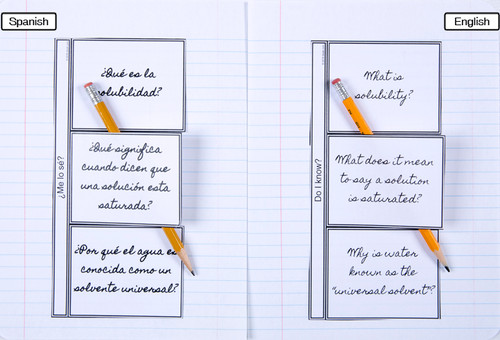 Spanish
¿Me lo sé?
¿Qué es la
solubilidad?
¿Qué significa
cuando dicen que
una solución esta
saturada?
¿Por qué el agua es
conocida como un
solvente universal?
English
Do I know?
What is
solubility?
What does it mean
to say a solution
is saturated?
Why is water
known as the
"universal solvent"?